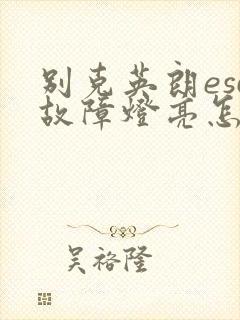 别克英朗es
故障燈亮怎
吴裕隆